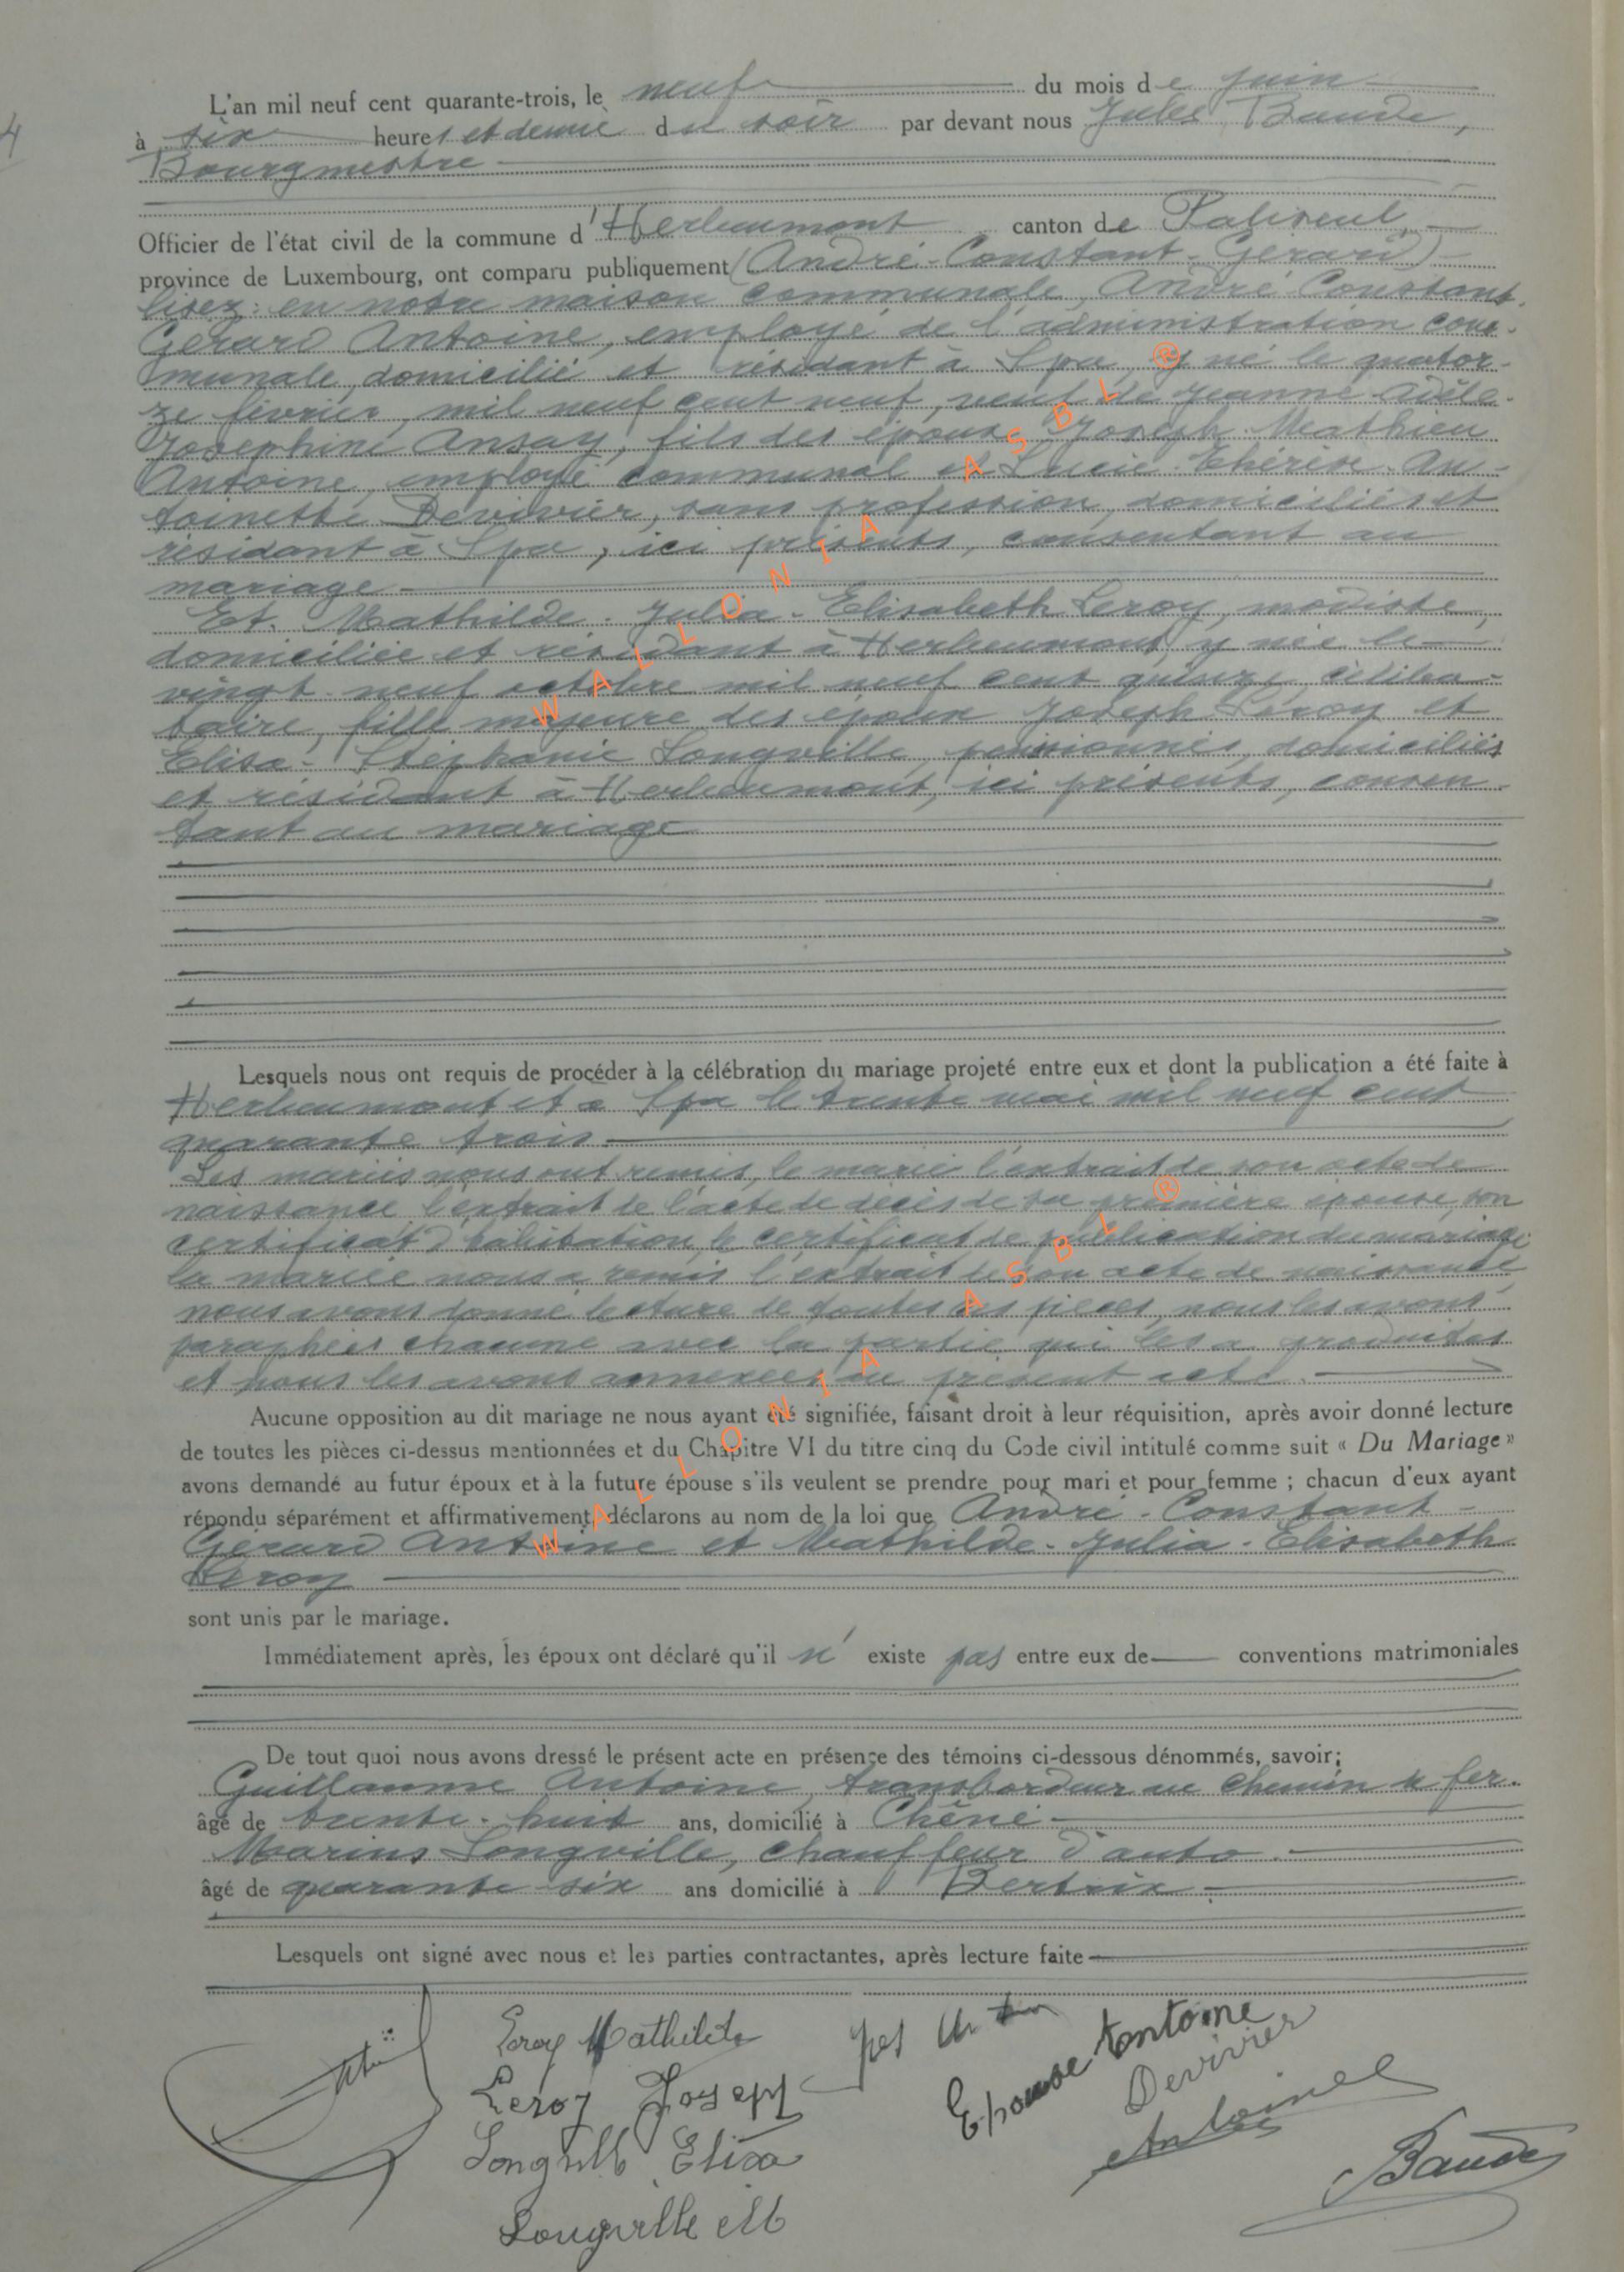 4
L'an mil neuf cent quarante-trois, le neuf du mois de juin
à six heures et demie du soir par devant nous Jules Baude,
Bourgmestre
Officier de l'état civil de la commune d'Herbeumont canton de Paliseul,
province de Luxembourg, ont comparu publiquement (André-Constant-Gerard)
lisez: en notre maison communale, André Constant-
Gérard Antoine, employé de l'administration com-
munale, domicilié et résidant à Spa, y né le quator-
ze février, mil neuf cent neuf, veuf de Jeanne-Adèle-
Josephine Ansay, fils des époux Joseph Mathieu
Antoine, employé communal et Lucie-Thérèse-An-
toinette Devivier, sans profession, domiciliés et
résidant à Spa, ici présents, consentant au
mariage
Et Mathilde-Julia-Elisabeth Leroy, modiste,
domiciliée et résidant à Herbeumont, y née le
vingt-neuf octobre mil neuf cent quinze, céliba-
taire, fille majeure des époux Joseph Leroy et
Elisa-Stéphanie Longville, pensionnés, domiciliés
et résidant à Herbeumont, ici présents, consen-
tant au mariage
Lesquels nous ont requis de procéder à la célébration du mariage projeté entre eux et dont la publication a été faite à
Herbeumont et à Spa le trente mai mil neuf cent
quarante trois
Les mariés nous ont remis, le marié l'extrait de son acte de
naissance l'extrait de l'acte de décès de sa première épouse, son
certificat d'habitation, le certificat de publication du mariage
la mariée nous a remis l'extrait de son acte de naissance
nous avons donné lecture de toutes ces pièces, nous les avons
paraphées chacune avec la partie qui les a produites
et nous les avons annexées au présent acte.
Aucune opposition au dit mariage ne nous ayant été signifiée, faisant droit à leur réquisition, après avoir donné lecture
de toutes les pièces ci-dessus mentionnées et du Chapitre VI du titre cinq du Code civil intitulé comme suit « Du Mariage »
avons demandé au futur époux et à la future épouse s'ils veulent se prendre pour mari et pour femme ; chacun d'eux ayant
répondu séparément et affirmativement, déclarons au nom de la loi que André-Constant-
Gérard Antoine et Mathilde-Julia-Elisabeth
Leroy
sont unis par le mariage.
Immédiatement après, les époux ont déclaré qu'il n'existe pas entre eux de conventions matrimoniales
De tout quoi nous avons dressé le présent acte en présence des témoins ci-dessous dénommés, savoir;
Guillaume Antoine, transbordeur au chemin de fer.
âgé de trente-huit ans, domicilié à Chêne
Marius Longville, chauffeur d'auto.
âgé de quarante-six ans domicilié à Bertrix
Lesquels ont signé avec nous et les parties contractantes, après lecture faite
Leroy Mathilde
Epouse Antoine
Devivier
Leroy Joseph
Antoine
Longville Elisa
Baude
Longville M
WALLONIA ASBL ®
WALLONIA ASBL ®